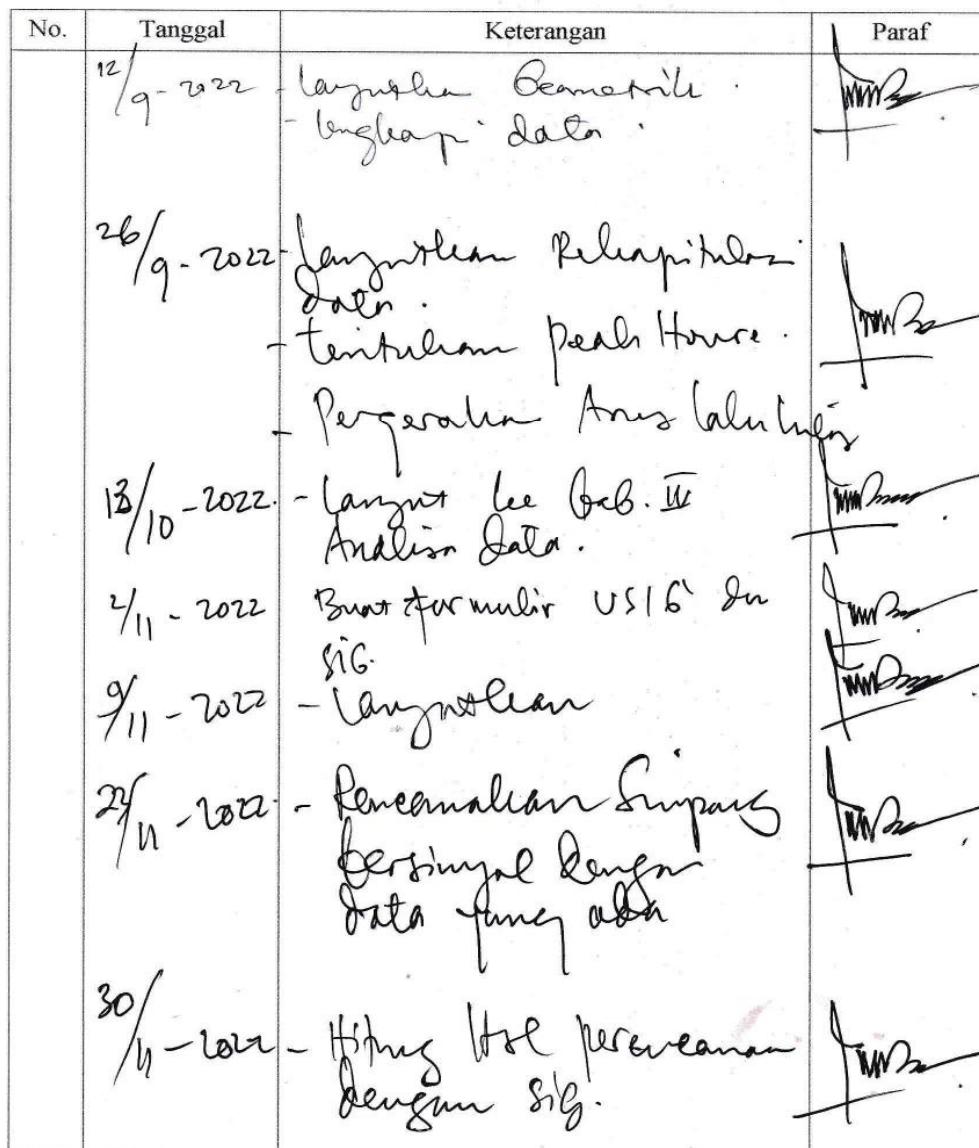 No. Tanggal Keterangan Paraf
12/9-2022 - lanjutkan Geometrik.
- lengkapi data.
26/9-2022 - Lanjutkan Rekapitulasi
data.
- tentukan peak Houre.
- Pergerakan Arus lalu lintas
13/10-2022. - Lanjut ke Bab. IV
Analisa data.
2/11-2022 Buat formulir USIG dan
SIG.
9/11-2022 - Lanjutkan
22/11-2022 - Rencanakan Simpang
bersinyal dengan
data yang ada
30/11-2022 - Hitung perencanaan
dengan SIG.